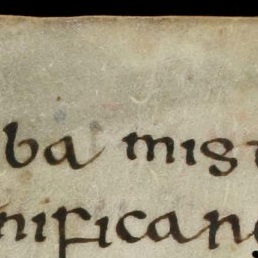 ba mist
nifican